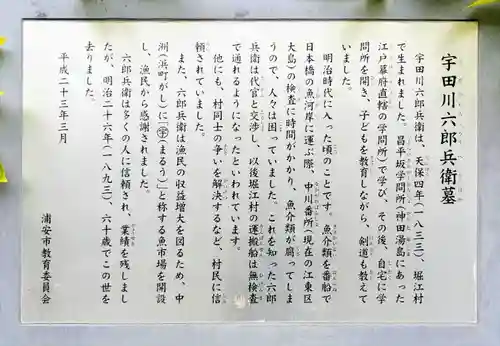 宇田川六郎兵衛墓
宇田川六郎兵衛は、天保四年(一八三三)、堀江村
で生まれました。昌平坂学問所(神田湯島にあった
江戸幕府直轄の学問所)で学び、その後、自宅に学
問所を開き、子どもを教育しながら、剣道も教えて
いました。
明治時代に入った頃のことです。魚介類を番船で
日本橋の魚河岸に運ぶ際、中川番所(現在の江東区
大島)の検査に時間がかかり、魚介類が腐ってしま
うので、人々は困っていました。これを知った六郎
兵衛は代官と交渉し、以後堀江村の運搬船は無検査
で通れるようになったといわれています。
他にも、村同士の争いを解決するなど、村民に信
頼されていました。
また、六郎兵衛は漁民の収益増大を図るため、中
洲(浜町がし)に「㋒(まるう)」と称する魚市場を開設
し、漁民から感謝されました。
六郎兵衛は多くの人に信頼され、業績を残しまし
たが、明治二十六年(一八九三)、六十歳でこの世を
去りました。
平成二十三年三月
浦安市教育委員会